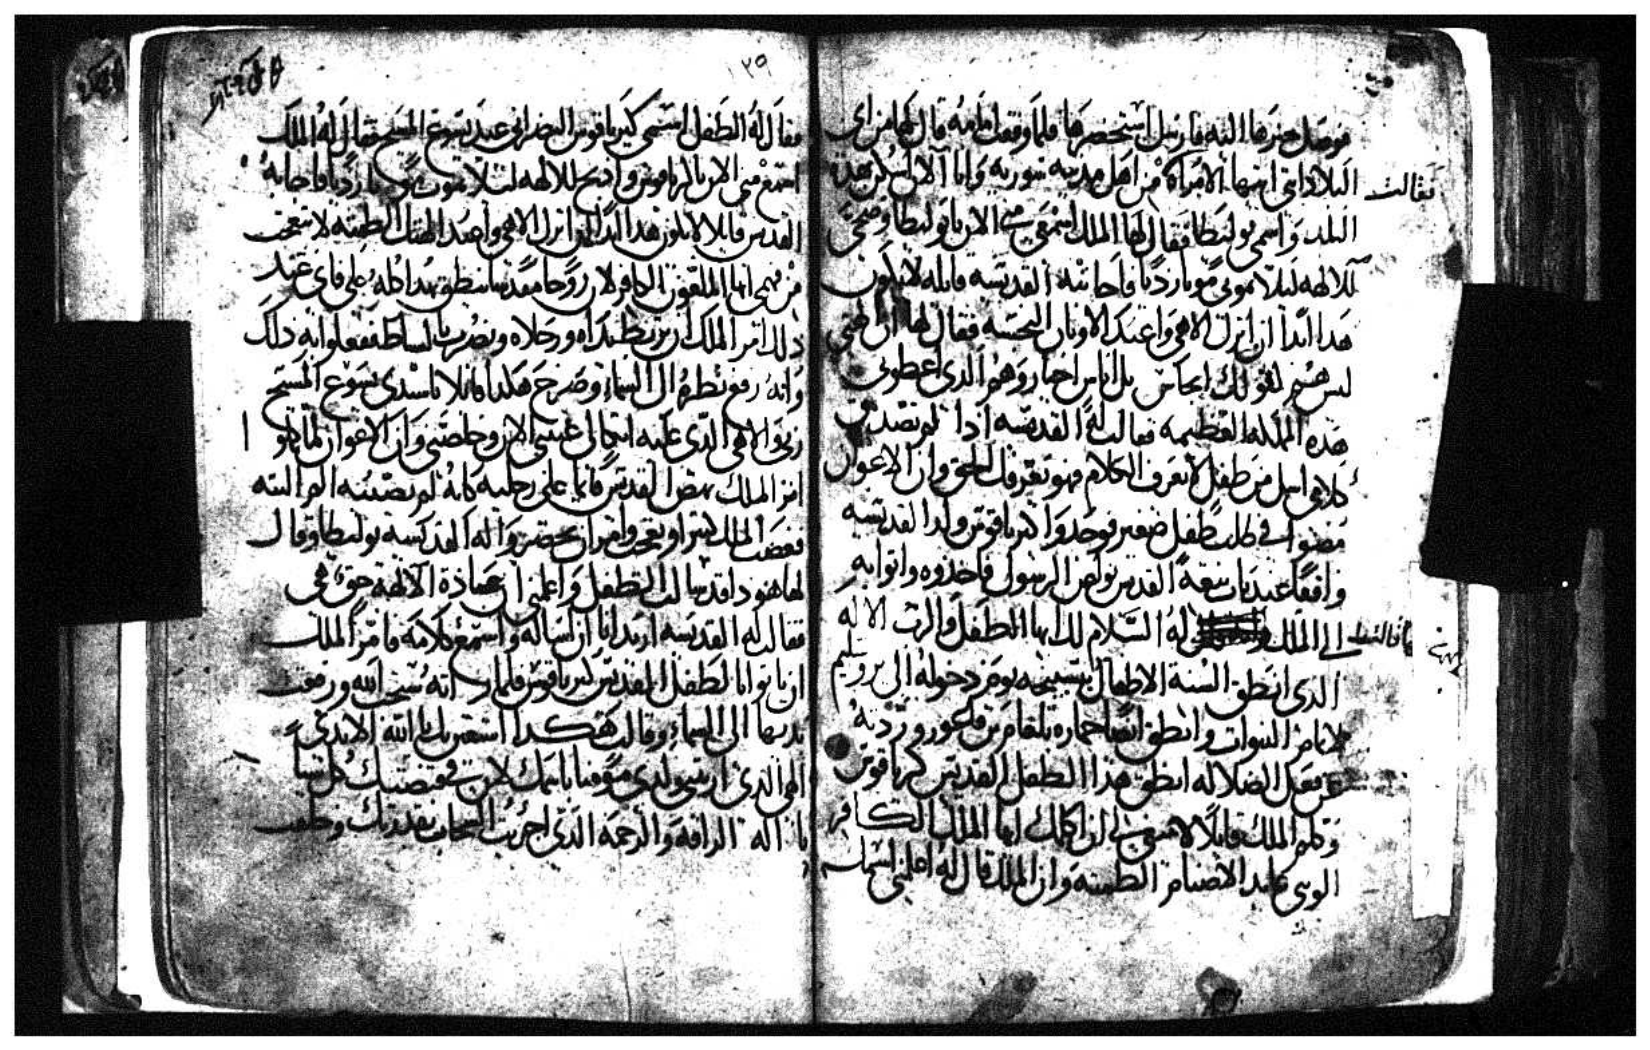 فوصل خبرها اليه فارسل استحضرها فلما وقفت امامه قال لها من اي
البلاد انتي ايتها الامراة من اهل مدينه سوريه وانا الان اسكن هده
فقالت
البلد واسمي يوليطا فقال لها الملك اسمعي مني الان يا يوليطا وضحي
للالهه ليلا تموتي موتا رديا فاجابته القديسه قايله لا يكون
هدا ابدا ان اترك الاهي واعبد الاوتان النجسه فقال لها ان الهتي
ليس هم لقولك انجاس بل اناس اخيار وهم الدي اعطوني
هده المملكه العظيمه فقالت له القديسه اذا لم تصدق
كلامي اسل من طفل لا يعرف الكلام فهو يعرفك الحق وان الاعوان
مضوا في طلب طفل صغير فوجدوا كيرياقوس ولد القديسه
واقفا عند باب بيعة القديس بولص الرسول فاخذوه واتوا به
الى الملك له السلام لك ايها الطفل والرب الاله
الدي انطق السنة الاطفال بتسبيحه يوم دخوله الى يروشليم
لاتمام النبوات وانطق ايضا حماره بلعام بن فاعور وردته
عن فعل الضلاله انطق هذا الطفل القديس كيرياقوس
وكلم الملك قايلا لا ينبغي لي ان اكلمك ايها الملك الكافر
الوثني عابد الاصنام الطمتة وان الملك قال له اعلمني اسمك
١٣٩
فقال له الطفل اسمي كيرياقوس النصراني عبد يسوع المسيح فقال له الملك
اسمع مني الان يا كيرياقوس واذبح للالهه ليلا تموت موتا رديا فاجابه
القديس قايلا لا يكون هدا ابدا ان اترك الاهي واعبد الهتك الطمته لا تتعجب
من نهي ايها الملك الكافر لان روحا مقدسا ينطق بهدا كله على فاي عند
ذلك امر الملك ان تربط يداه ورجلاه ويضرب بالسياط ففعلوا به ذلك
وانه رفع نظره الى السماء وصرخ هكدا قايلا يا سيدي يسوع المسيح
ربي والاهي الدي عليه اتكالي اعينني الان وخلصني وان الاعوان لما
امر الملك نهض القديس قايما على رجليه كانه لم يصيبه الم البته
فغضب الملك كتيرا وتعجب وامر ان تحضر والدة القديسه يوليطا وقال
لها هود اقد سالت الطفل واعلمني ان عبادة الالهة حق هي
فقالت له القديسه اريد انا ان اساله واستمع كلامه فامر الملك
ان ياتوا بالطفل القديس كيرياقوس فلما راته سبحت الله ورفعت
يديها الى السماء وقالت هكدا اشكرك يا ابن الله الابدي
الهي الذي اريتني ولدي مومنا باسمك لان في قبضتك كل شيا
يا اله الرافه والرحمه الذي اجريت السحاب بقدرتك وظهرت